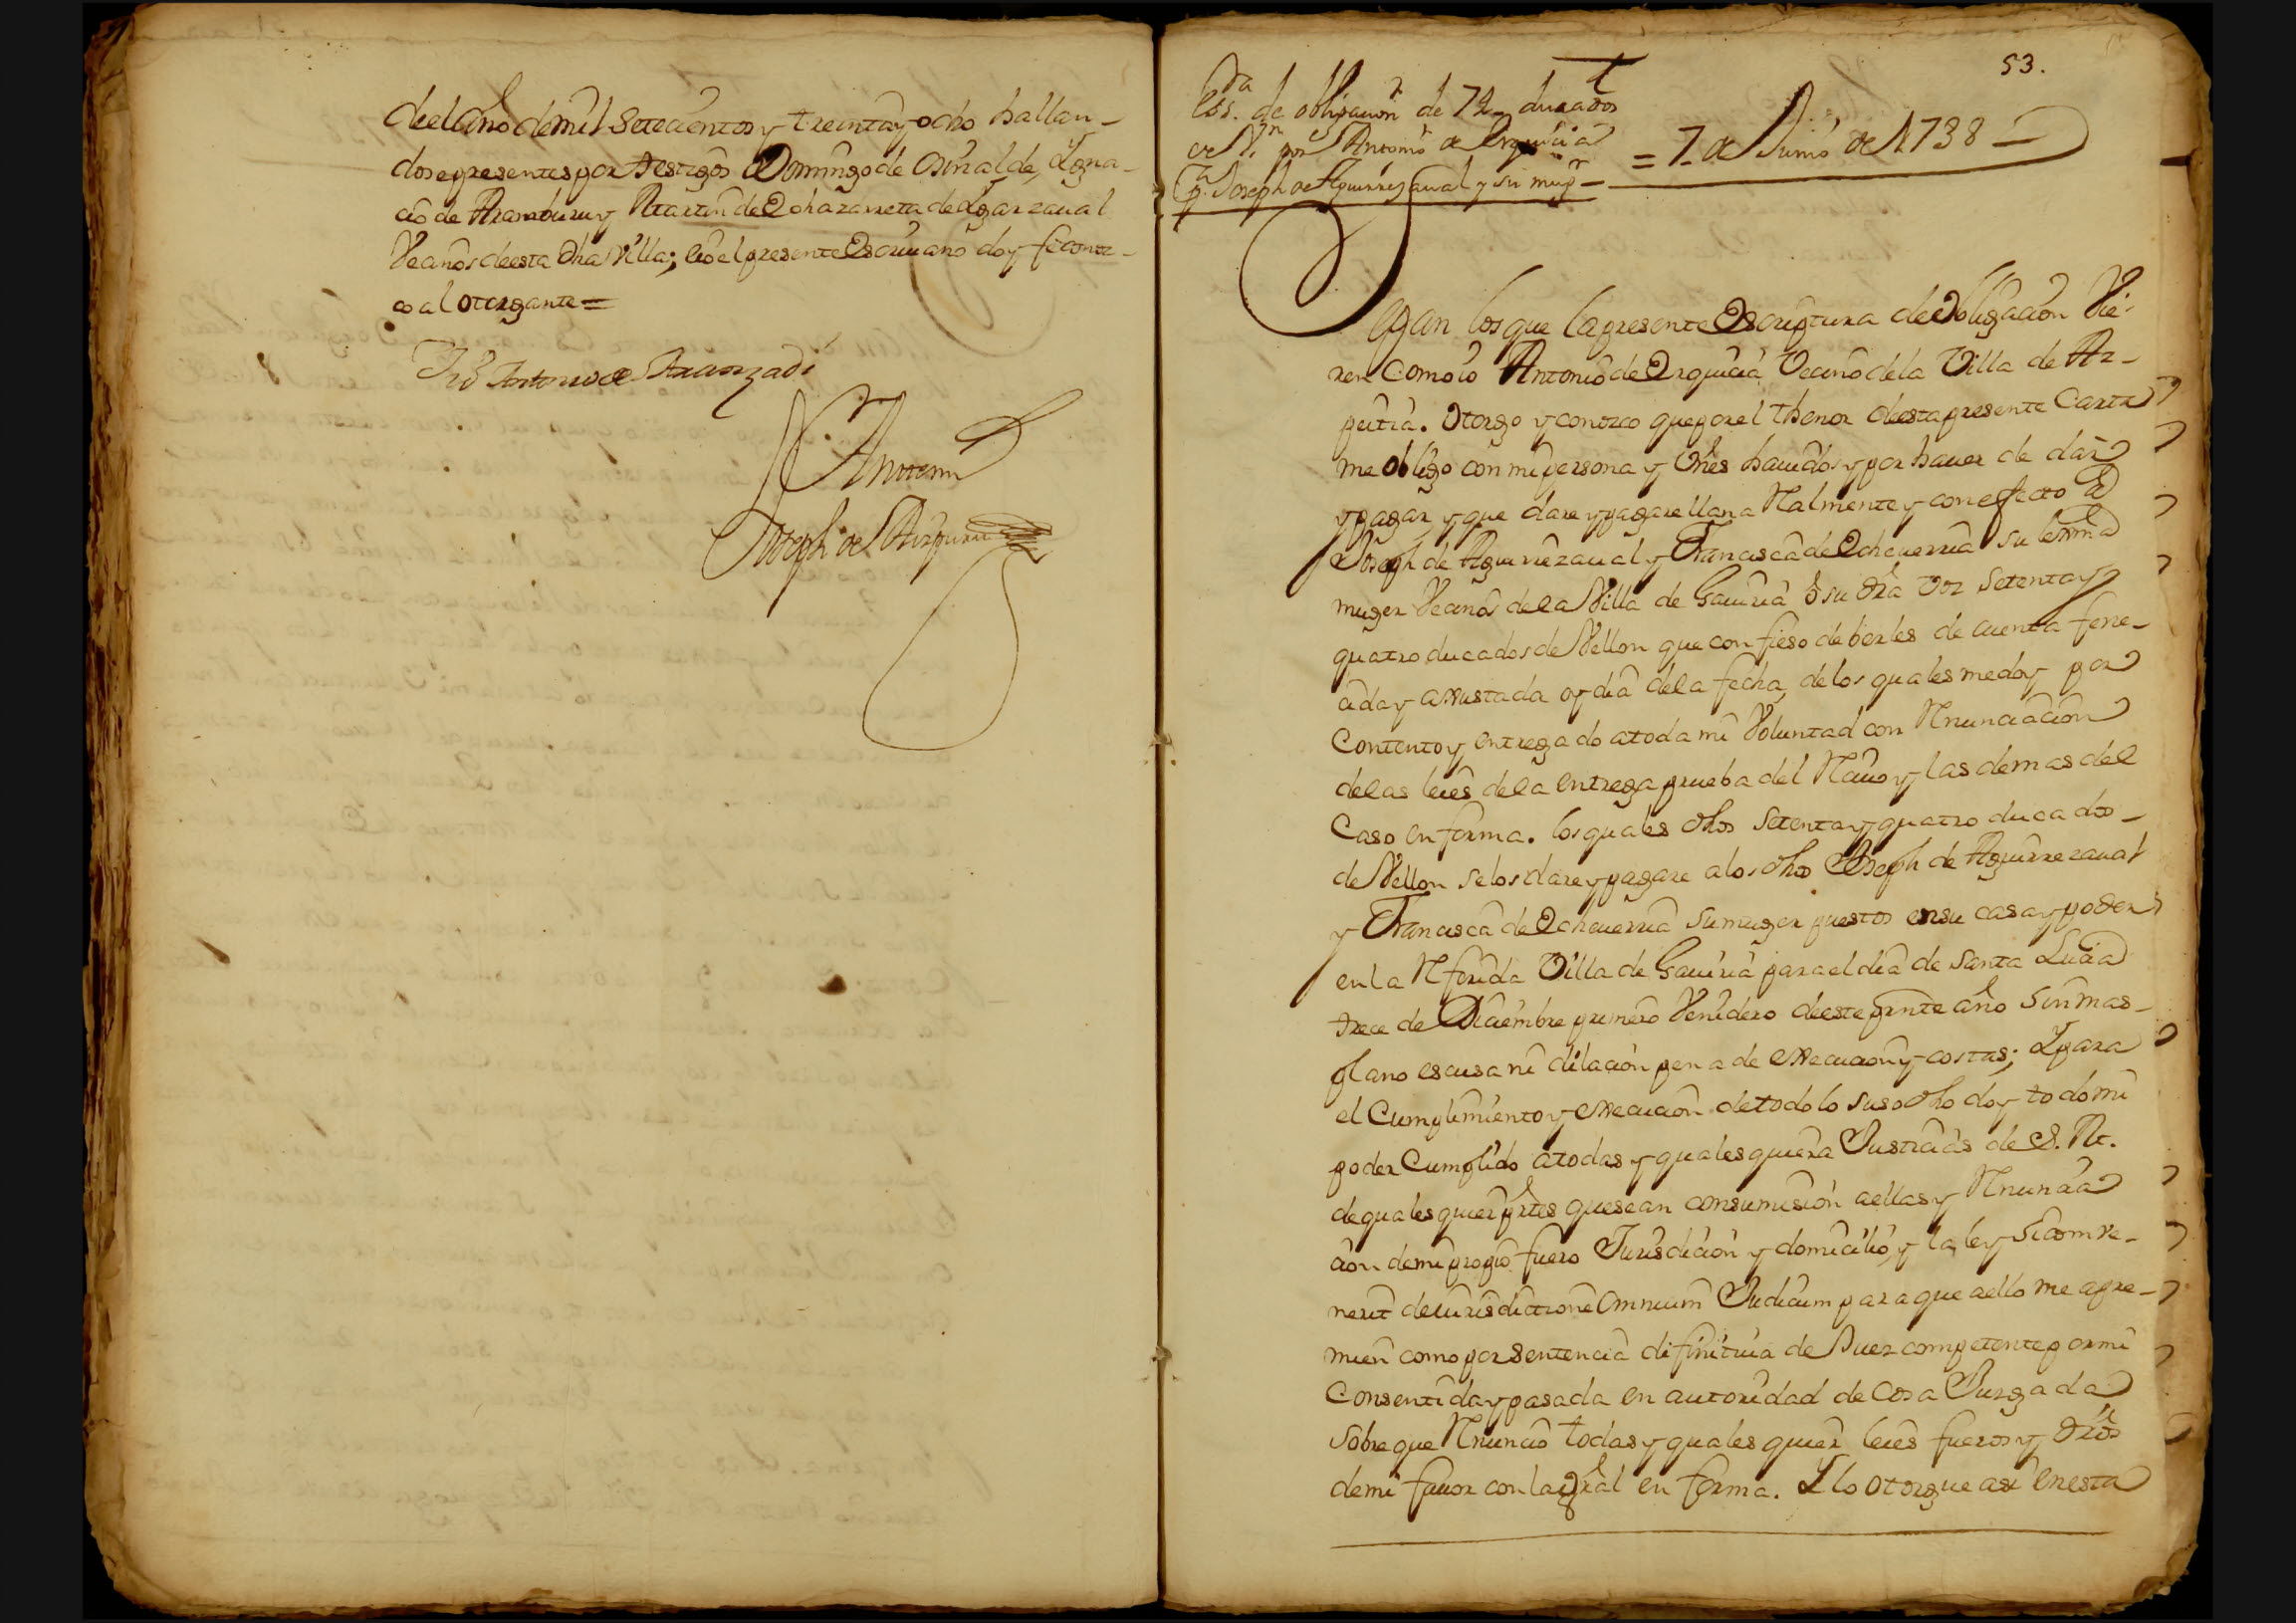 de el año de mil Setecientos y treinta y ocho hallan-
dose presentes por testigos Domingo de Osinalde, Ygna-
cio de Aramburu y Martin de Echazarreta de Ygarzaual
Vecinos de esta dha Villa; e io el presente Escriuano doy fe conoz-
co al otorgante =
Antonio de Aranzadi
Ante mi
Joseph de Aizpuru
53.
Essra. de obligacion de 74 ducados
de Vn por Antonio de Orquicia
pa. Joseph de Aguirrezaual y su mugr
= 7 de Junio de 1738 =
Sepan los que la presente Escriptura de obligacion Vie-
ren Como io Antonio de Orquicia Vecino de la Villa de Az-
peitia. Otorgo y conozco que por el thenor de esta presente Carta
me obligo con mi persona y Vnes hauidos y por hauer de dar
y pagar y que dare y pagare llana Realmente y con efecto a
Joseph de Aguirrezaual y Francisca de Echeuerria su lexma
muger Vecinos de la Villa de Gauiria o su dra voz Setenta y
quatro ducados de Vellon que confieso deberles de cuenta fene-
cida y axustada oy dia de la fecha, de los quales me doy por
Contento y entregado a toda mi Voluntad con Renunciacion
de las leies de la entrega prueba del Reciuo y las demas del
Caso en forma. los quales dhos Setenta y quatro ducados-
de Vellon se los dare y pagare a los dhos Joseph de Aguirrezaual
y Francisca de Echeuerria su muger puestos en su casa y poder
en la Referida Villa de Gauiria para el dia de Santa Lucia
trece de Diciembre primero Venidero de este prnte año Sin mas-
plano escusa ni dilacion pena de execucion y costas; Y para
el Cumplimiento y execucion de todo lo suso dho doy todo mi
poder Cumplido a todas y qualesquiera Justicias de S. M.
de qualesquier prtes que sean con sumision a ellas y Renuncia
cion de mi propio fuero Jurisdicion y domicilio, y la ley Sicomve-
nerit de iurisdictione Omnium Judicum para que a ello me apre-
mien como por Sentencia difinitiua de Juez competente por mi
Consentida y pasada en autoridad de Cosa Juzgada
Sobre que Renuncio todas y qualesquier leies fueros y dros
de mi fauor con la gral en forma. Y lo otorgue asi en esta